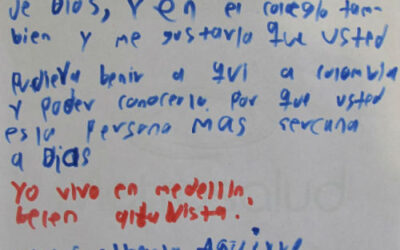 de Dios, y en el colegio tam
bien y me gustaria que usted
pudiera benir a qui a colombia
y poder conocerlo. Por que usted
es la Persona mas sercana
a Dios
Yo vivo en medellin,
belen alta Vista.